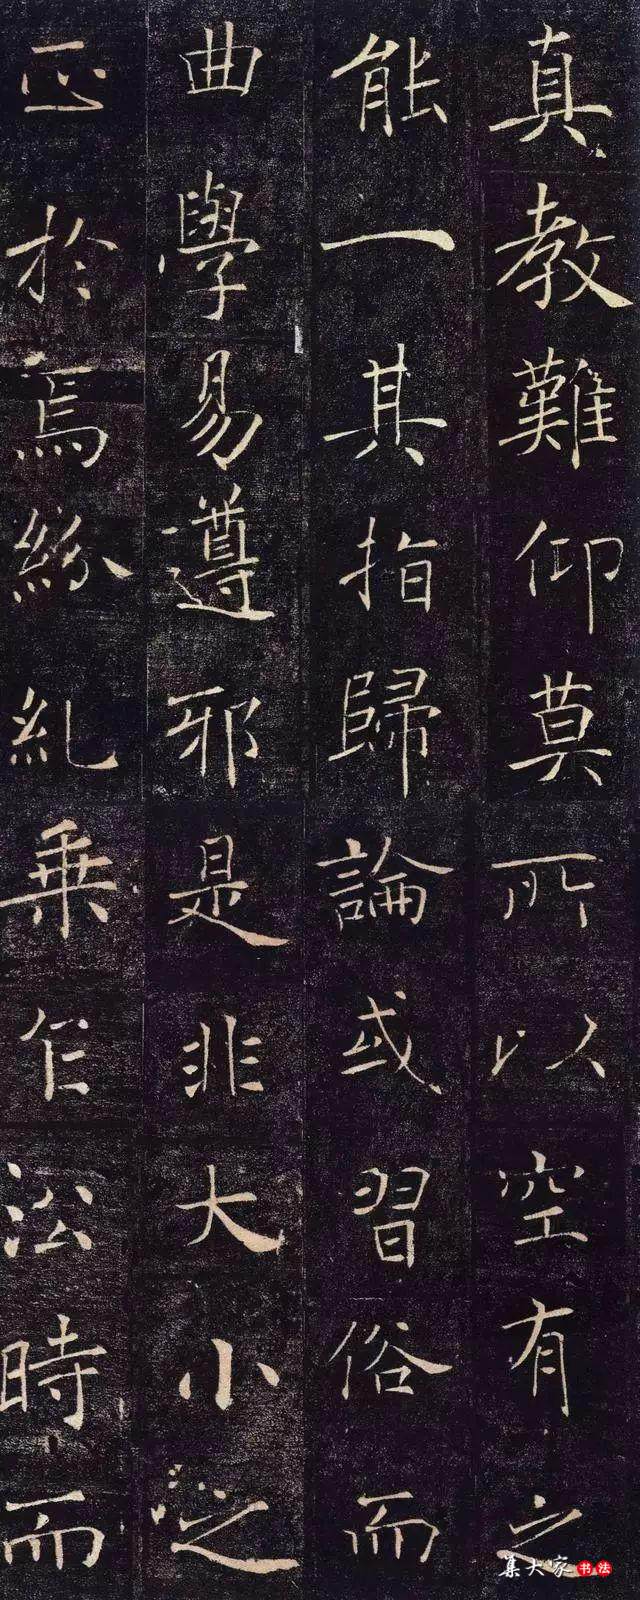 真教難仰莫所以空有之
能一其指歸論或習俗而
曲學易遵邪是非大小之
正於焉紛糺乘乍沿時而
集大家书法